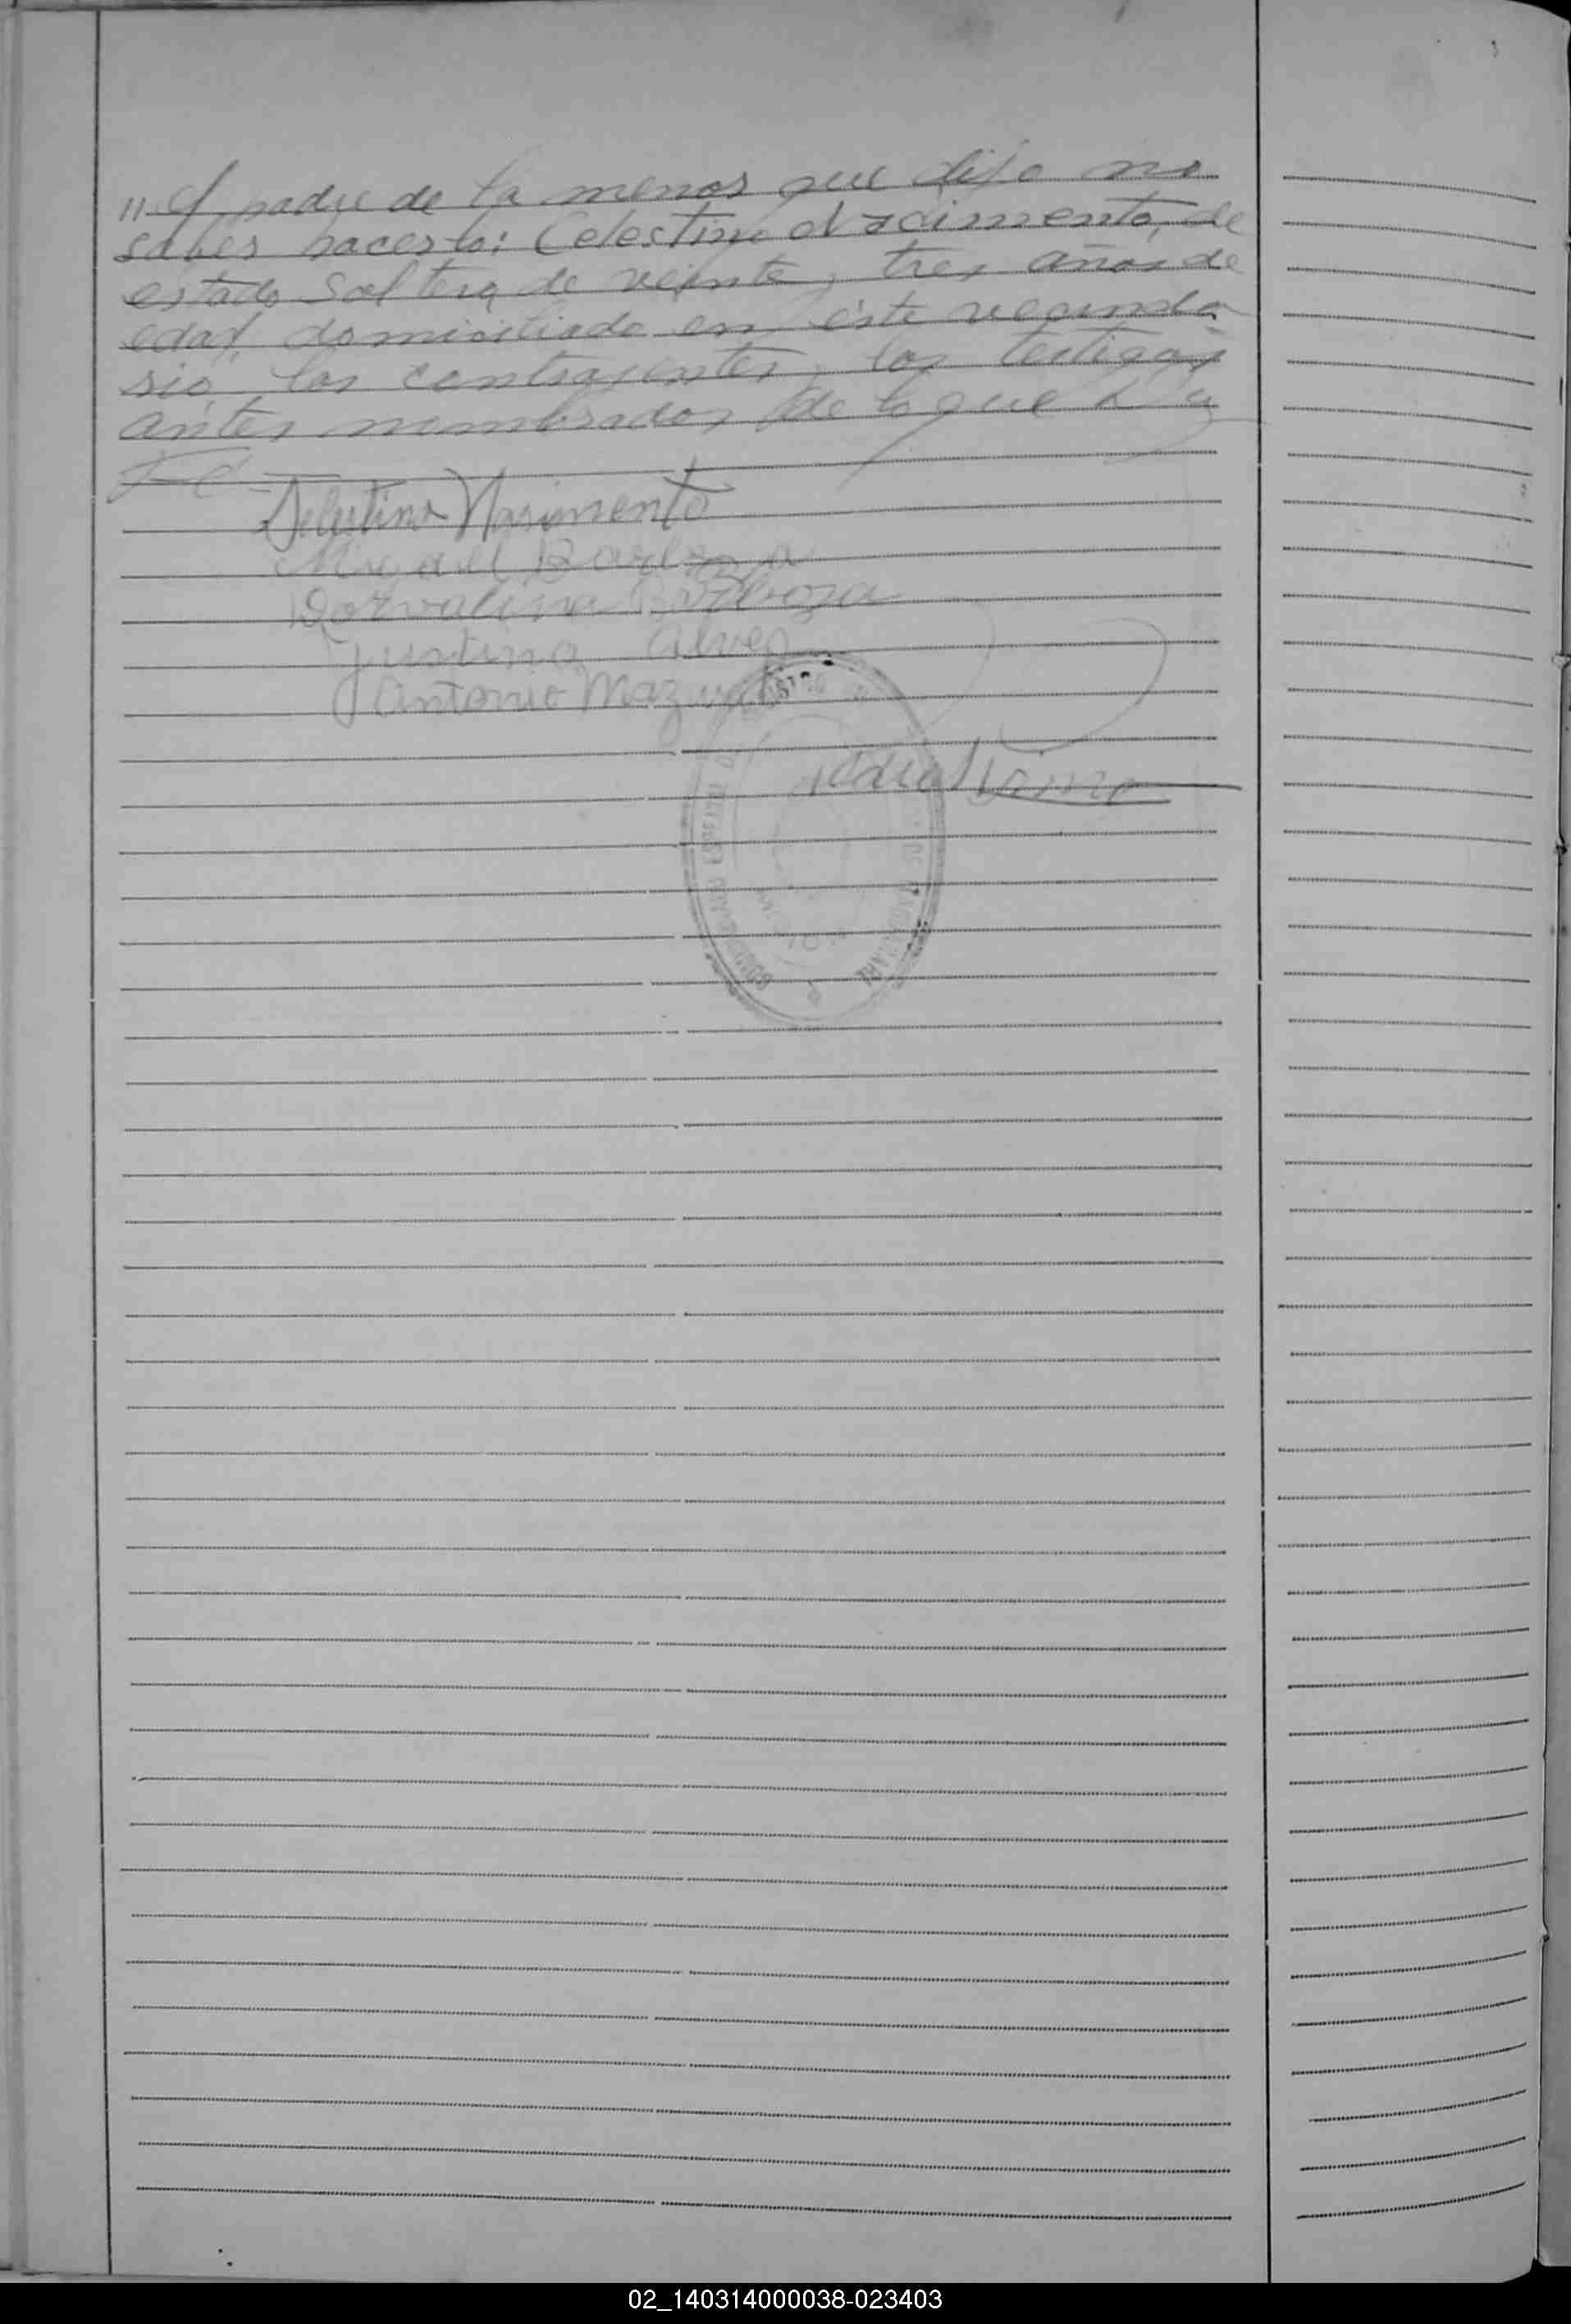 "el padre de la menor que dijo no
saber hacerlo; Celestino Nacimento, de
estado soltero, de veinte y tres años de
edad, domiciliado en éste vecinda-
rio, los contrayentes y los testigos
antes nombrados, de lo que doy
Fé-
Selestino Nasimento
Barboza
Dorvalina Barboza
Justino Alves
Antonio Maz
02_140314000038-023403